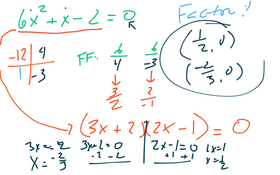 6x² + x - 2 = 0
Factor!
-12 | 4
1 | -3
FF: 6/4 6/-3
(1/2, 0)
(-2/3, 0)
3/2 2/-1
(3x+2)(2x-1) = 0
3x+2=0
-2 -2
3x=-2
x=-2/3
2x-1=0
+1 +1
2x=1
x=1/2